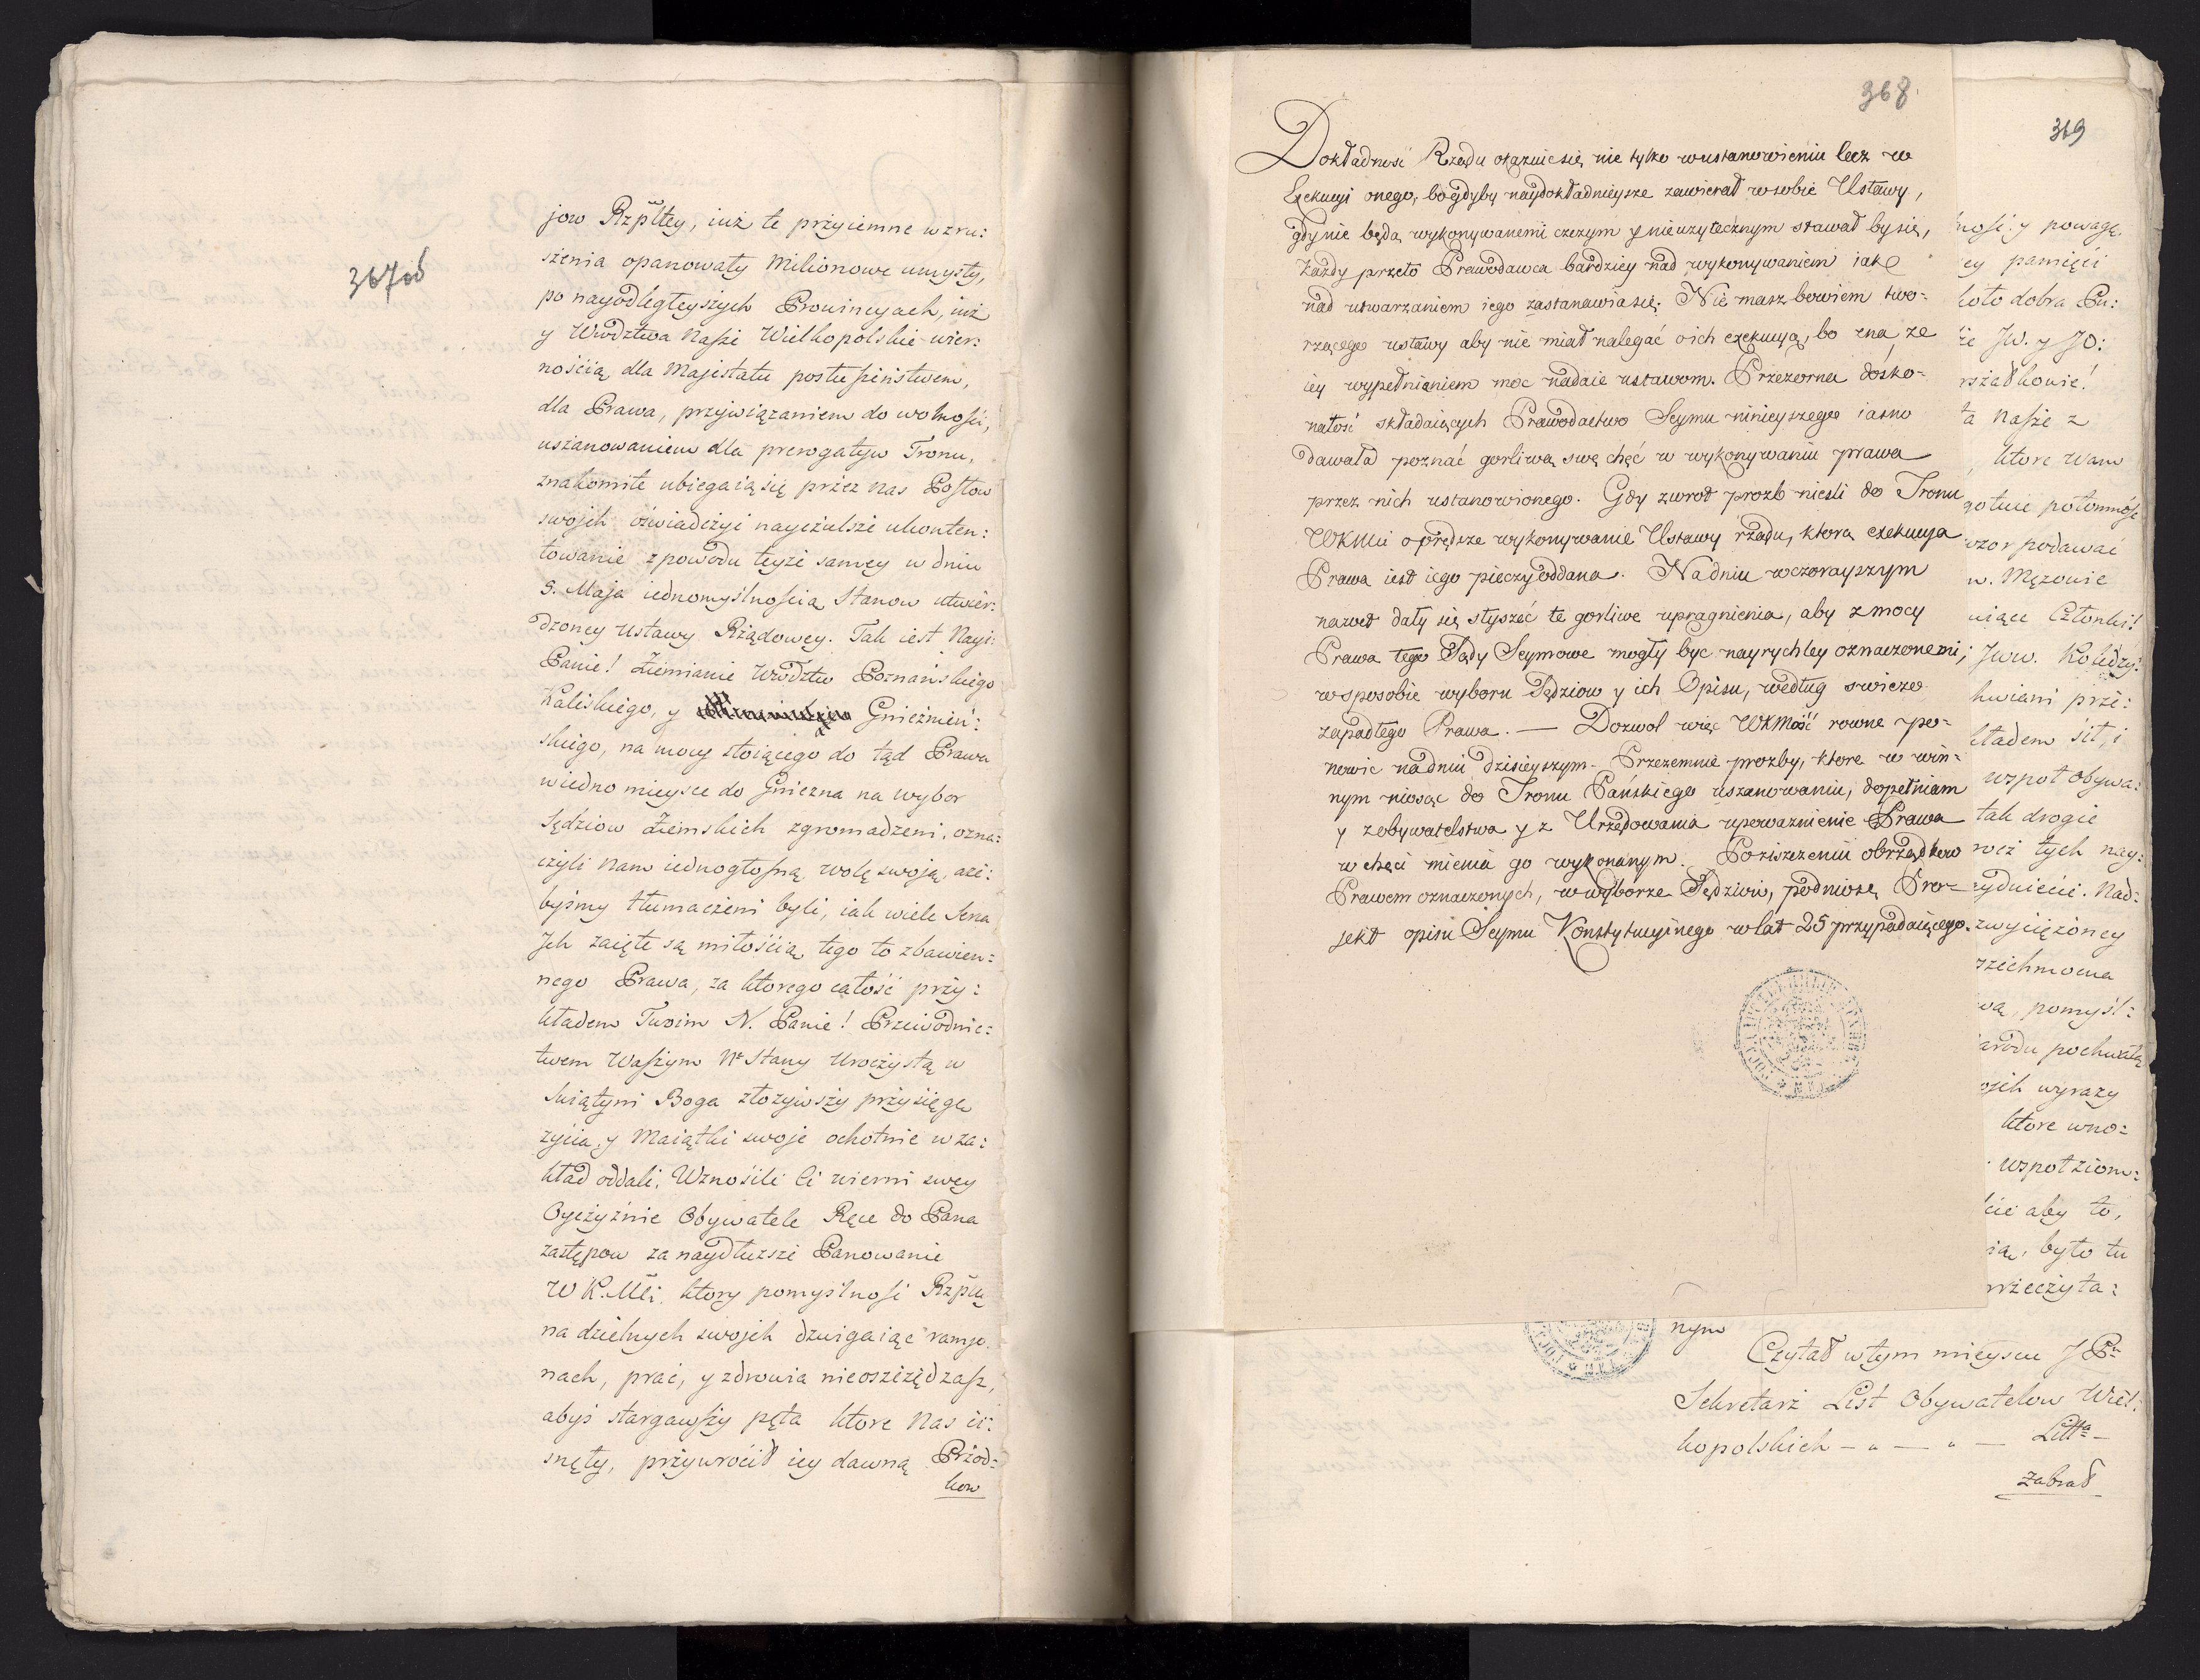 367od
jow Rzpltey, iuż te przyiemne wzru:
szenia opanowały Milionowe umysły,
po nayodległeyszych Prowincyach, iuż
y Wwdztwa Nasze Wielkopolskie wier:
nością dla Majestatu posłuszeństwem,
dla Prawa, przywiązaniem do wolności,
uszanowaniem dla prerogatyw Tronu,
znakomite ubiegaią się przez Nas Posłow
swojch oświadczyć nayczulsze ukonten:
towanie z powodu teyże samey w dniu
3. Maja iednomyślnością Stanow utwier:
dzoney Ustawy Rządowey. Tak iest Nayi:
Panie! Ziemianie Wwdztw Poznańskiego
Kaliskiego, y Gnieźnień:
skiego, na mocy stoiącego do tąd Prawa
wiedno mieysce do Gniezna na wybor
Sędziow Ziemskich zgromadzeni, ozna:
czyli Nam iednogłośną wolę swoją, aże:
byśmy tłumaczemi byli, iak wiele Serca
Jch zaięte są miłością tego to zbawien:
nego Prawa, za ktorego całość przy:
kładem Twoim N. Panie! Przewodnic:
twem Waszym Ne Stany Uroczystą w
Swiątyni Boga złożywszy przysięgę
życia, y Maiątki swoje ochotnie w za:
kład oddali; Wznosili Ci wierni swey
Oyczyźnie Obywatele Ręce do Pana
zastępow za naydłuższe Panowanie
W K. Mci. ktory pomyślnosć Rzpltey
na dzielnych swojch dzwigaiąc ramjo
nach, prac, y zdrowia nieoszczędzasz,
abyś stargawszy pęta ktore Nas ci:
snęły, przywrócił iey dawną Przod:
kow
368
Dokładność Rządu okazuie się nie tylko w ustanowieniu lecz w
Exekucyi onego, bo gdyby naydokładnieysze zawierał w sobie Ustawy,
gdy nie będą wykonywanemi czczym y nieuzytecznym stawał by się,
Każdy przeto Prawodawca bardziey nad wykonywaniem iak
nad utwarzaniem iego zastanawia się. Nie masz bowiem two-
rzącego ustawy aby nie miał nalegać o ich exekucyą, bo zna, ze
iey wypełnianiem moc nadaie ustawom. Przezorna dosko-
nałość składaiących Prawodactwo Seymu ninieyszego iasno
dawała poznać gorliwą swę chęć w wykonywaniu prawa
przez nich ustanowionego. Gdy zwrot prozb niesli do Tronu
WKMci o prędsze wykonywanie Ustawy rządu, ktorą exekucya
Prawa iest iego pieczy oddana. Na dniu wczorayszym
nawet dały się słyszeć te gorliwe upragnienia, aby z mocy
Prawa tego Sądy Seymowe mogły być nayrychley oznaczonemi,
w sposobie wyboru Sędziow y ich Opisu, według swieżo
zapadłego Prawa. — Dozwol więc WKMość rowne po-
nowic na dniu dzisieyszym Przezemnie prozby, ktore w win-
nym niosąc do Tronu Pańskiego uszanowaniu, dopełniam
y z obywatelstwa y z Urzędowania upoważnienie Prawa
w chęci mienia go wykonanym. Po ziszczeniu obrządkow
Prawem oznaczonych, w wyborze Sędziow, podniosę Pro-
jekt opisu Seymu Konstytucyinego w lat 25 przypadaiącego.
369
ność: y powagę
ey pamięci
koło dobra Pu:
że JW. y JO:
rszałkowie!
ta Nasze z
, ktore Wam
gotuie potomność
wzor podawać
w. Mężowie
uiące Członki!
JWW. Koledzy!
kwiani prze:
kładem sił, i
wspoł Obywa:
tak drogie
rwiż tych nay:
zydnieici. Nad:
zwyciężoney
szechmocna
wa, pomyśl:
arodu pochwałą
ojch wyrazy
ktore wno:
wspoł ziom:
kie aby to,
ia, było tu
przeczyta:
nym
Czytał w tym mieyscu JP
Sekretarz List Obywatelow Wiel:
kopolskich — „ — „ — Litta —
zabrał